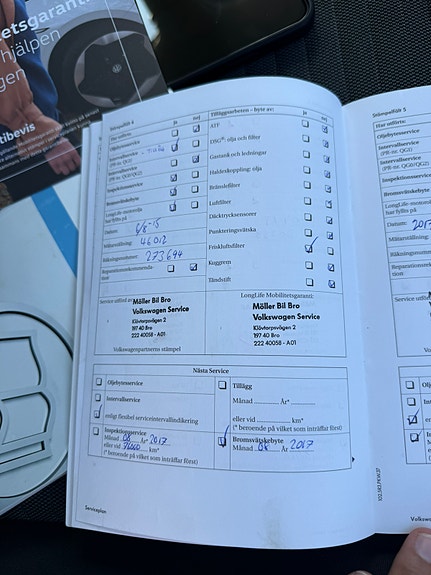 etsgaranti
hjälpen
gen
tibevis
Stämpelfält 4
Har utförts:
ja
nej
Oljebytesservice
Intervallservice
(PR-nr. QG1)
Intervallservice
(PR-nr. QG0/QG2)
Inspektionsservice
Bromsvätskebyte
LongLife-motorolja
har fyllts på
Datum:
6/8-15
Mätarställning:
46012
Räkningsnummer:
273694
Reparationsrekommendation
Tilläggsarbeten – byte av:
ja
nej
ATF
DSG® olja och filter
Gastank och ledningar
Haldexkoppling: olja
Bränslefilter
Luftfilter
Däcktrycksensorer
Punkteringsvätska
Friskluftsfilter
Kuggrem
Tändstift
Service utförd av
Möller Bil Bro
Volkswagen Service
Klövtorpsvägen 2
197 40 Bro
222 40058 - A01
Volkswagenpartnerns stämpel
LongLife Mobilitetsgaranti:
Möller Bil Bro
Volkswagen Service
Klövtorpsvägen 2
197 40 Bro
222 40058 - A01
Nästa Service
Oljebytesservice
Intervallservice
enligt flexibel serviceintervallindikering
Inspektionsservice
Månad 08 År* 2017
eller vid 76000 km*
(* beroende på vilket som inträffar först)
Tillägg
Månad År*
eller vid km*
(* beroende på vilket som inträffar först)
Bromsvätskebyte
Månad 08 År 2017
Serviceplan
Stämpelfält 5
Har utförts:
Oljebytesservice
Intervallservice
(PR-nr. QG1)
Intervallservice
Inspektionsservice
Bromsvätskebyte
LongLife-motorolja
har fyllts på
Datum: 2017
Mätarställning:
Räkningsnummer
Service utförd av